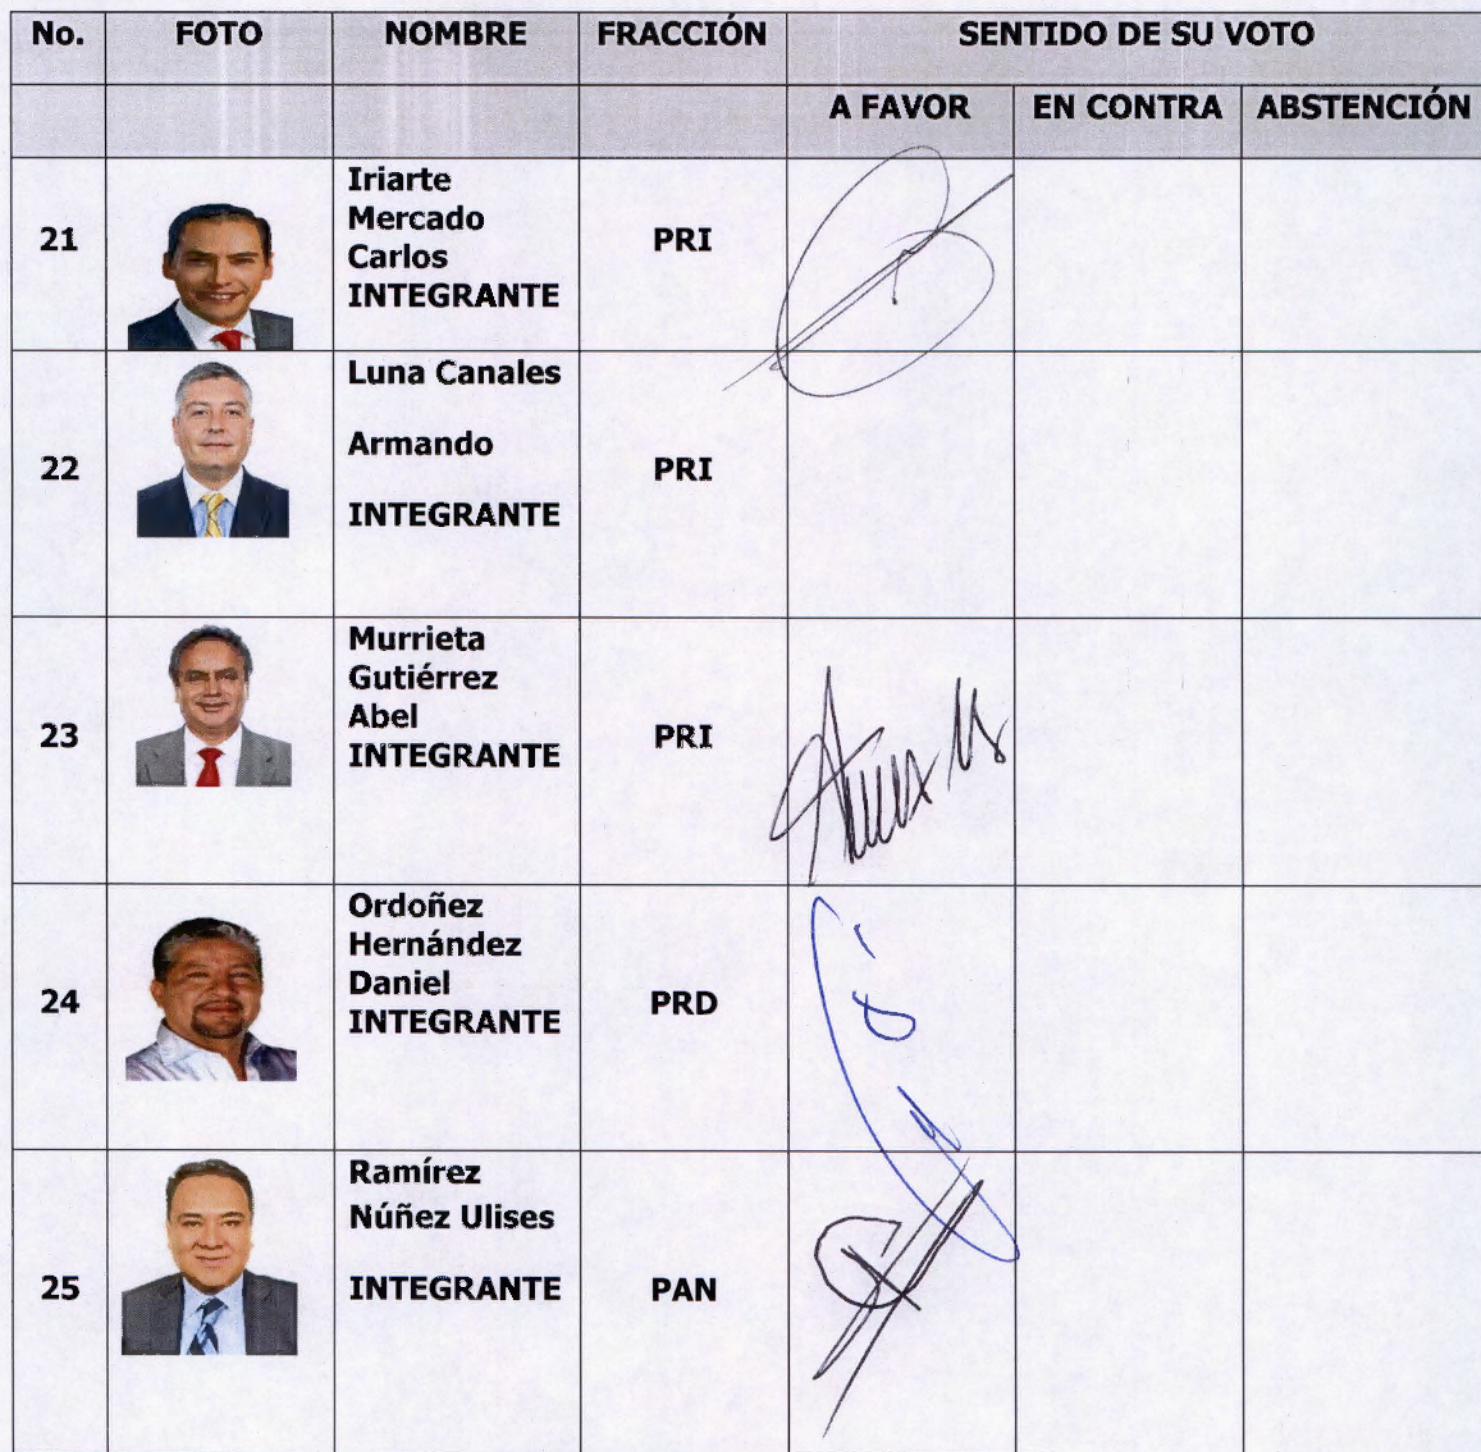 No. FOTO NOMBRE FRACCIÓN SENTIDO DE SU VOTO
A FAVOR EN CONTRA ABSTENCIÓN
Iriarte
Mercado
21 PRI
Carlos
INTEGRANTE
Luna Canales
Armando
22 PRI
INTEGRANTE
Murrieta
Gutiérrez
Abel
23 PRI
INTEGRANTE
Ordoñez
Hernández
Daniel
24 PRD
INTEGRANTE
Ramírez
Núñez Ulises
25 INTEGRANTE PAN